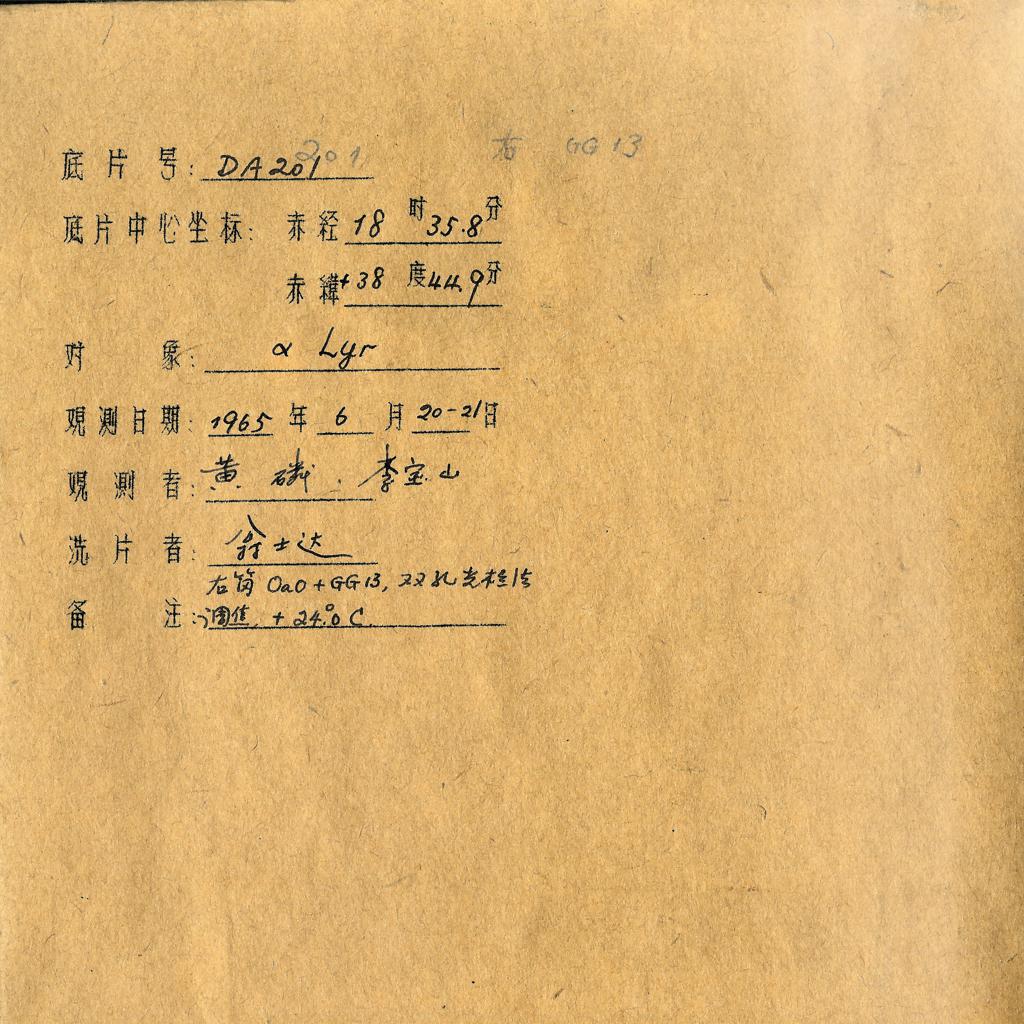 201 右 GG 13
底片号: DA201
底片中心坐标: 赤经 18 时 35.8 分
赤緯 +38 度 44.9 分
对象: α Lyr
观测日期: 1965 年 6 月 20-21 日
观测者: 黄磷. 李宝山
洗片者: 翁士达
右筒 OaO + GG13, 双孔光栏法
备注: 调焦, + 24.°0 C